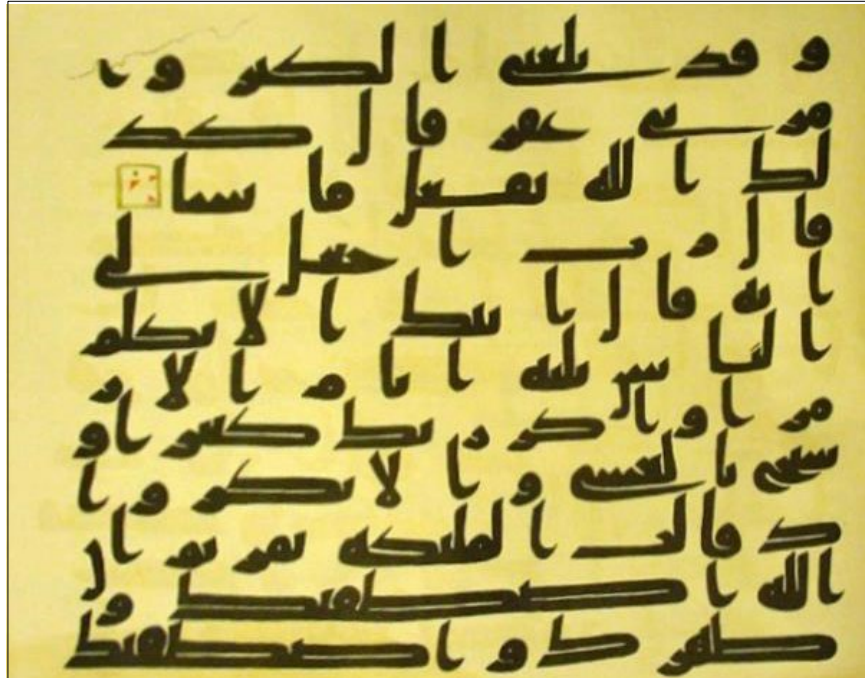 وقد بلغني الكبر وا
مراتي عقر قال كذ
لك الله يفعل ما يشا
قال رب اجعل لي
اية قال ايتك الا تكلم
الناس ثلثة ايام الا ر
مزا واذكر ربك كثيرا و
سبح بالعشي والابكر وا
ذ قالت الملئكة يمريم ان
الله اصطفيك و
طهرك واصطفيك